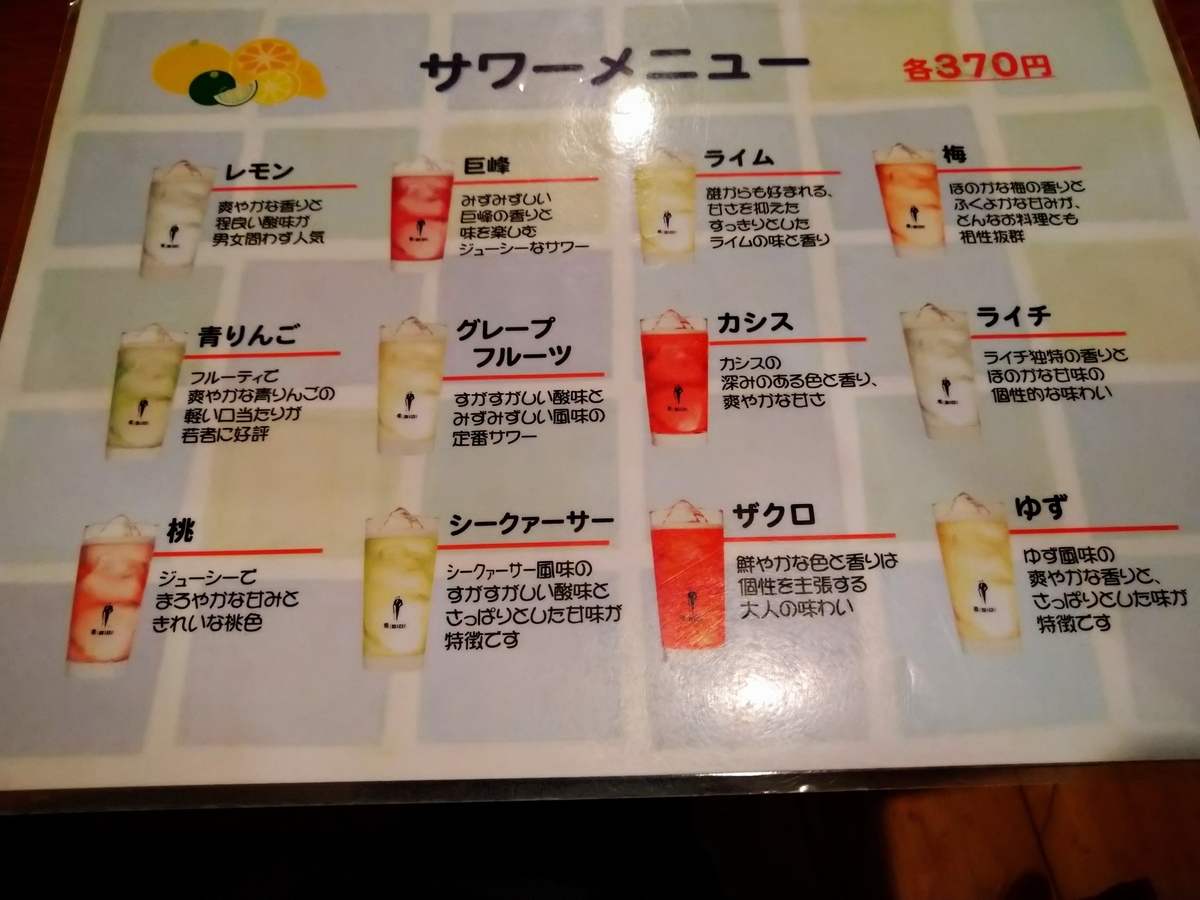 サワーメニュー
各370円
レモン
爽やかな香りと
程良い酸味が
男女問わず人気
巨峰
みずみずしい
巨峰の香りと
味を楽しむ
ジューシーなサワー
ライム
誰からも好まれる、
甘さを抑えた
すっきりとした
ライムの味と香り
梅
ほのかな梅の香りと
ふくよかな甘みが、
どんなお料理とも
相性抜群
青りんご
フルーティで
爽やかな青りんごの
軽い口当たりが
若者に好評
グレープ
フルーツ
すがすがしい酸味と
みずみずしい風味の
定番サワー
カシス
カシスの
深みのある色と香り、
爽やかな甘さ
ライチ
ライチ独特の香りと
ほのかな甘味の
個性的な味わい
桃
ジューシーで
まろやかな甘みと
きれいな桃色
シークァーサー
シークァーサー風味の
すがすがしい酸味と
さっぱりとした甘味が
特徴です
ザクロ
鮮やかな色と香りは
個性を主張する
大人の味わい
ゆず
ゆず風味の
爽やかな香りと、
さっぱりとした味が
特徴です